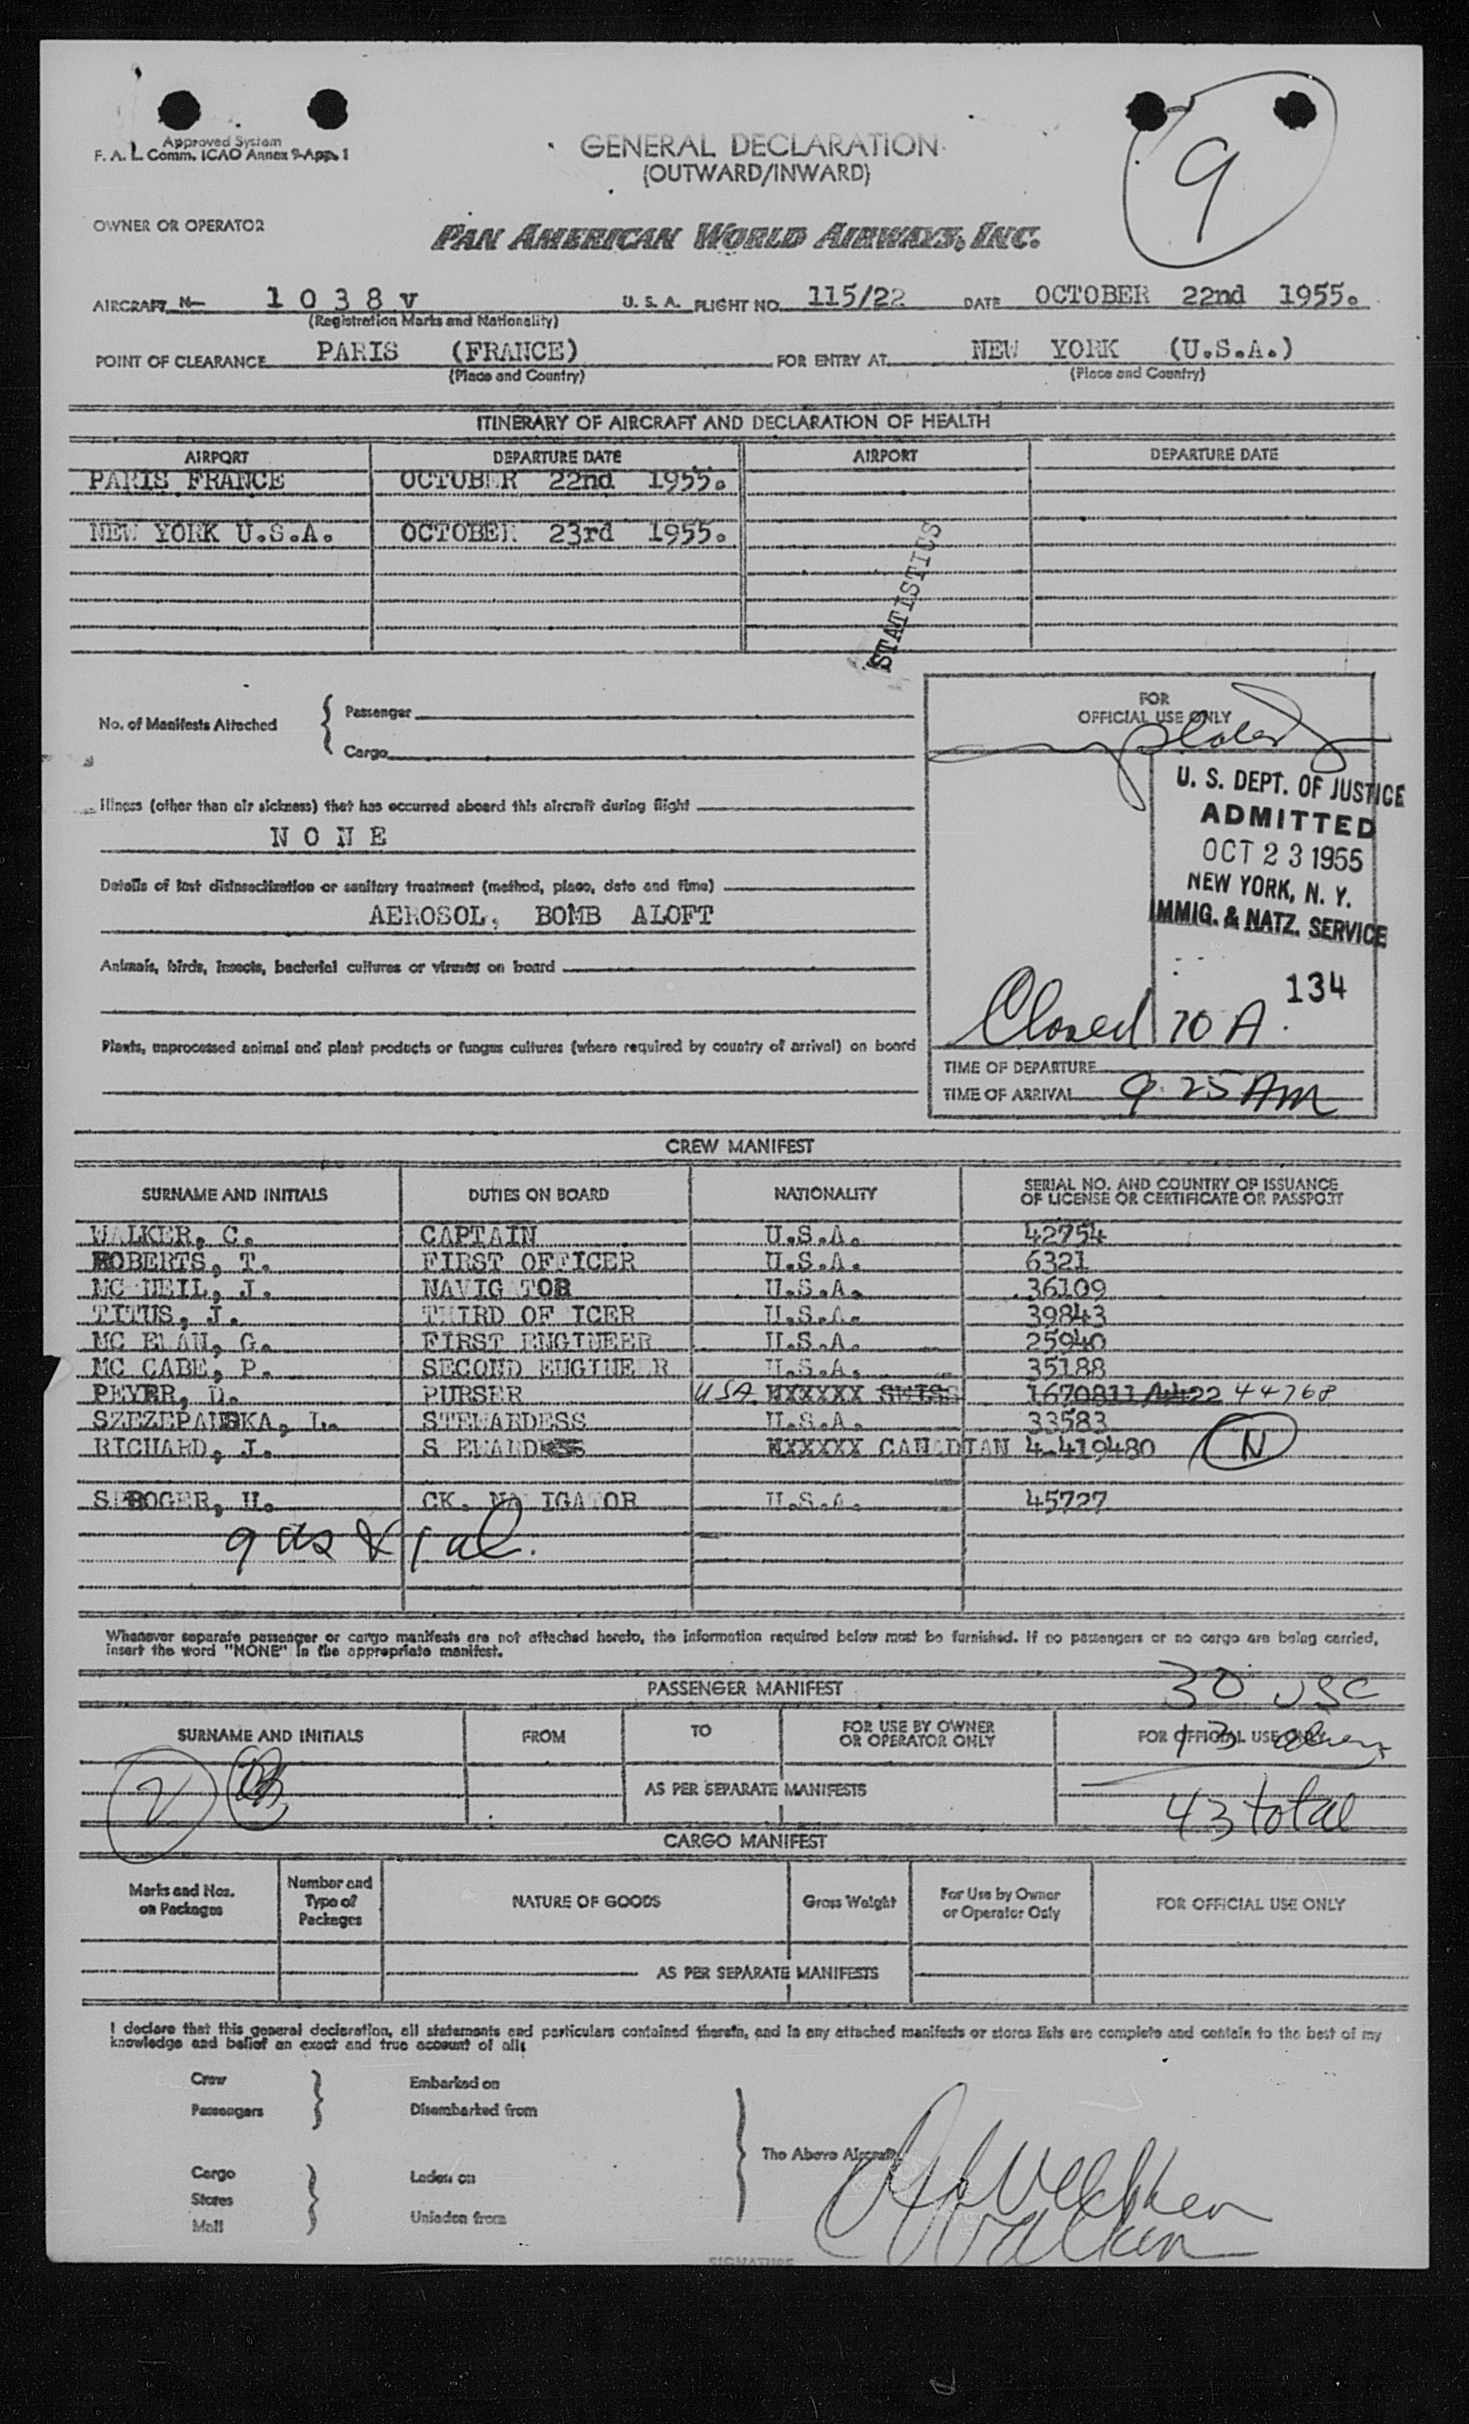 Approved System
F. A. L. Comm. ICAO Annex 9-App. 1
GENERAL DECLARATION
(OUTWARD/INWARD)
9
OWNER OR OPERATOR
PAN AMERICAN WORLD AIRWAYS, INC.
AIRCRAFT N- 1 0 3 8 v U. S. A. FLIGHT NO. 115/22 DATE OCTOBER 22nd 1955.
(Registration Marks and Nationality)
POINT OF CLEARANCE PARIS (FRANCE) FOR ENTRY AT NEW YORK (U.S.A.)
(Place and Country) (Place and Country)
ITINERARY OF AIRCRAFT AND DECLARATION OF HEALTH
AIRPORT DEPARTURE DATE AIRPORT DEPARTURE DATE
PARIS FRANCE OCTOBER 22nd 1955.
NEW YORK U.S.A. OCTOBER 23rd 1955.
STATISTICS
No. of Manifests Attached { Passenger
Cargo
FOR
OFFICIAL USE ONLY
U. S. DEPT. OF JUSTICE
ADMITTED
OCT 23 1955
NEW YORK, N. Y.
IMMIG. & NATZ. SERVICE
134
Closed 10 A.
TIME OF DEPARTURE
TIME OF ARRIVAL 9:25 AM
Illness (other than air sickness) that has occurred aboard this aircraft during flight
N O N E
Details of last disinsectization or sanitary treatment (method, place, date and time)
AEROSOL, BOMB ALOFT
Animals, birds, insects, bacterial cultures or viruses on board
Plants, unprocessed animal and plant products or fungus cultures (where required by country of arrival) on board
CREW MANIFEST
SURNAME AND INITIALS DUTIES ON BOARD NATIONALITY SERIAL NO. AND COUNTRY OF ISSUANCE
OF LICENSE OR CERTIFICATE OR PASSPORT
WALKER, C. CAPTAIN U.S.A. 42754
ROBERTS, T. FIRST OFFICER U.S.A. 6321
MC NEIL, J. NAVIGATOR U.S.A. 36109
TITUS, J. THIRD OFFICER U.S.A. 39843
MC ELAN, G. FIRST ENGINEER U.S.A. 25940
MC CABE, P. SECOND ENGINEER U.S.A. 35188
PEYER, D. PURSER USA XXXXXX SWISS 1670811/4422 44768
SZEZEPANSKA, L. STEWARDESS U.S.A. 33583
RICHARD, J. STEWARDESS XXXXXX CANADIAN 4-419480 N
CK. NAVIGATOR U.S.A. 45727
9 us & 1 al.
Whenever separate passenger or cargo manifests are not attached hereto, the information required below must be furnished. If no passengers or no cargo are being carried,
insert the word "NONE" in the appropriate manifest.
PASSENGER MANIFEST
30 USC
SURNAME AND INITIALS FROM TO FOR USE BY OWNER
OR OPERATOR ONLY FOR OFFICIAL USE ONLY
13 aliens
2
AS PER SEPARATE MANIFESTS
43 total
CARGO MANIFEST
Marks and Nos.
on Packages Number and
Type of
Packages NATURE OF GOODS Gross Weight For Use by Owner
or Operator Only FOR OFFICIAL USE ONLY
AS PER SEPARATE MANIFESTS
I declare that this general declaration, all statements and particulars contained therein, and in any attached manifests or stores lists are complete and contain to the best of my
knowledge and belief an exact and true account of all:
Crew Embarked on
Passengers Disembarked from
The Above Aircraft
Cargo Laden on
Stores
Mail Unladen from
Walker
SIGNATURE